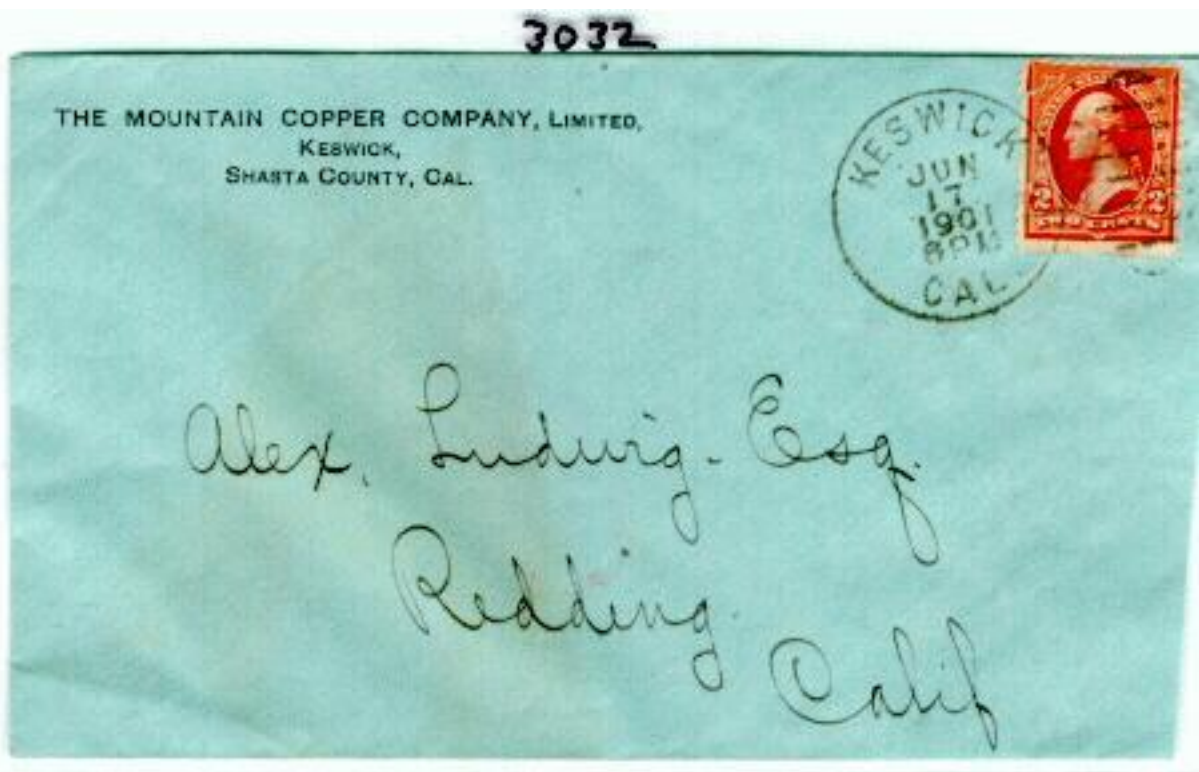 3032
THE MOUNTAIN COPPER COMPANY, LIMITED,
KESWICK,
SHASTA COUNTY, CAL.
KESWICK
JUN
17
1901
8 PM
CAL
2 2
Alex. Ludwig - Esq.
Redding.
Calif